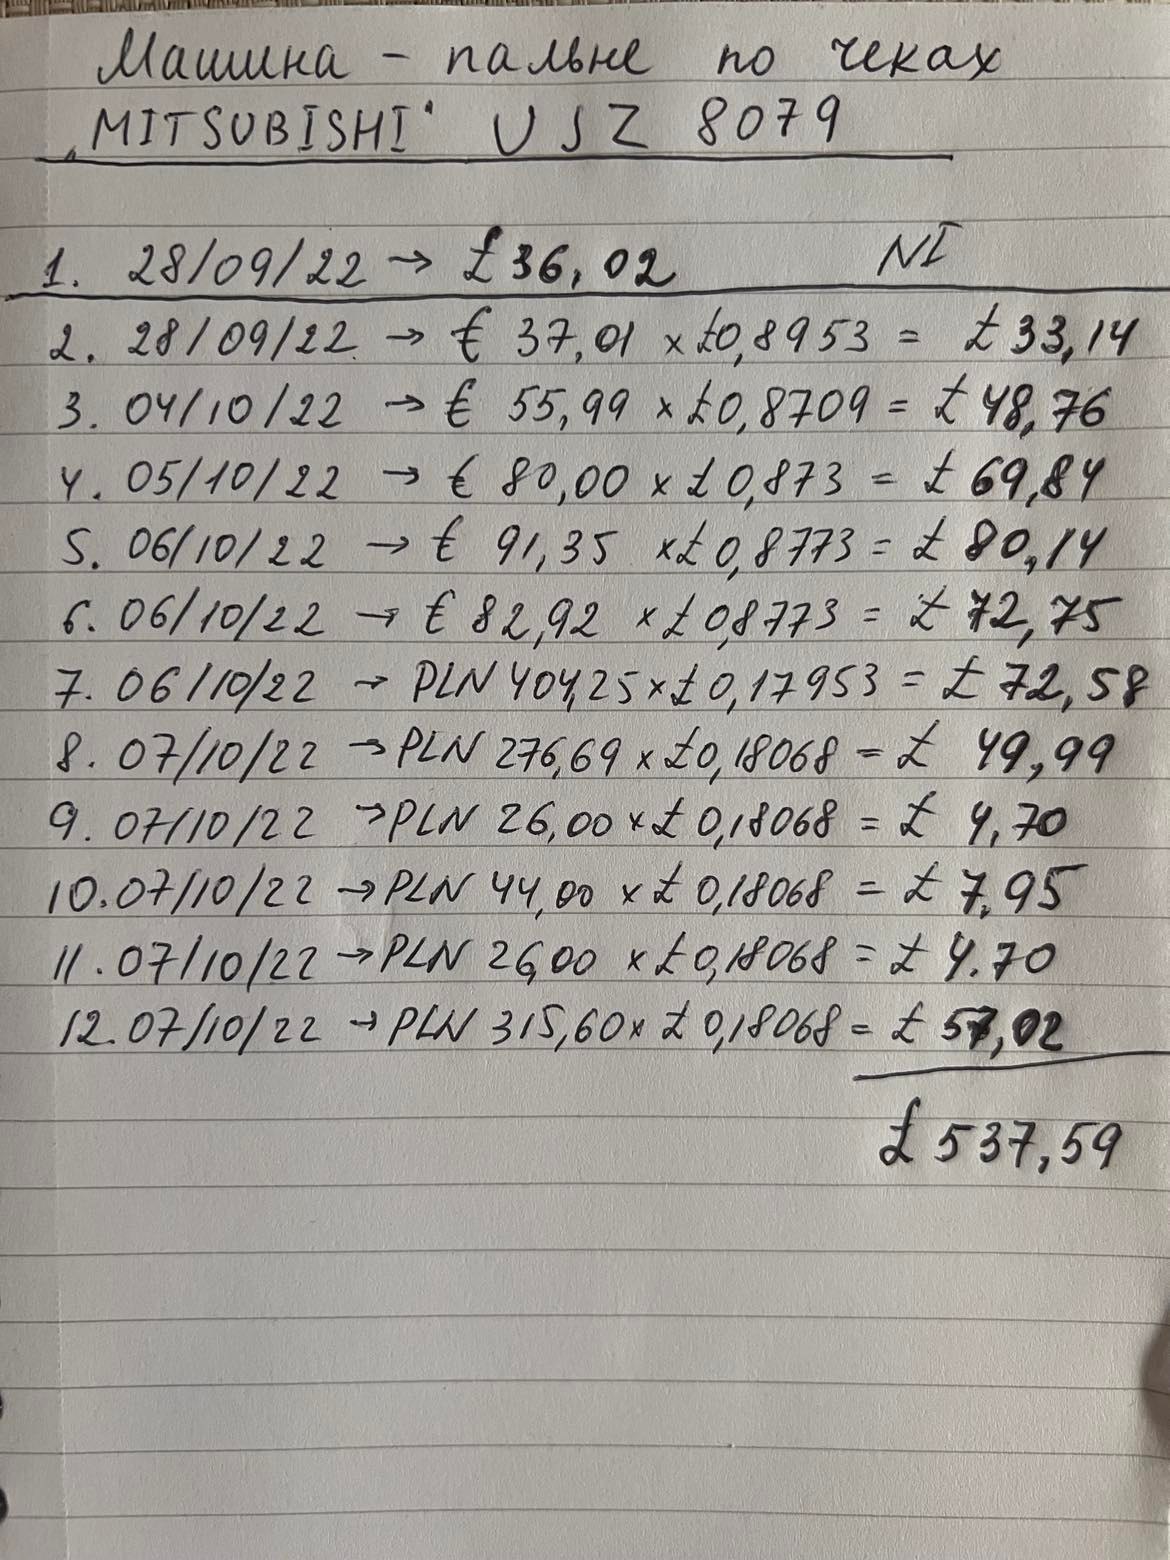 Машина – пальне по чеках
"MITSUBISHI" UJZ 8079
1. 28/09/22 → £36,02 NI
2. 28/09/22 → € 37,01 x £0,8953 = £33,14
3. 04/10/22 → € 55,99 x £0,8709 = £48,76
4. 05/10/22 → € 80,00 x £0,873 = £69,84
5. 06/10/22 → € 91,35 x £0,8773 = £80,14
6. 06/10/22 → € 82,92 x £0,8773 = £72,75
7. 06/10/22 → PLN 404,25 x £0,17953 = £72,58
8. 07/10/22 → PLN 276,69 x £0,18068 = £ 49,99
9. 07/10/22 → PLN 26,00 x £0,18068 = £ 4,70
10. 07/10/22 → PLN 44,00 x £0,18068 = £7,95
11. 07/10/22 → PLN 26,00 x £0,18068 = £4.70
12. 07/10/22 → PLN 315,60 x £0,18068 = £57,02
£537,59